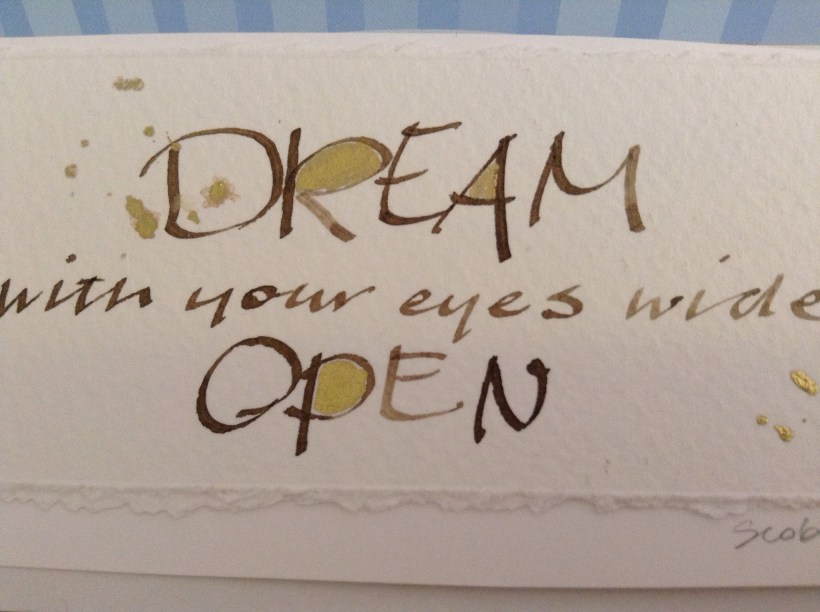 DREAM
with your eyes wide
OPEN